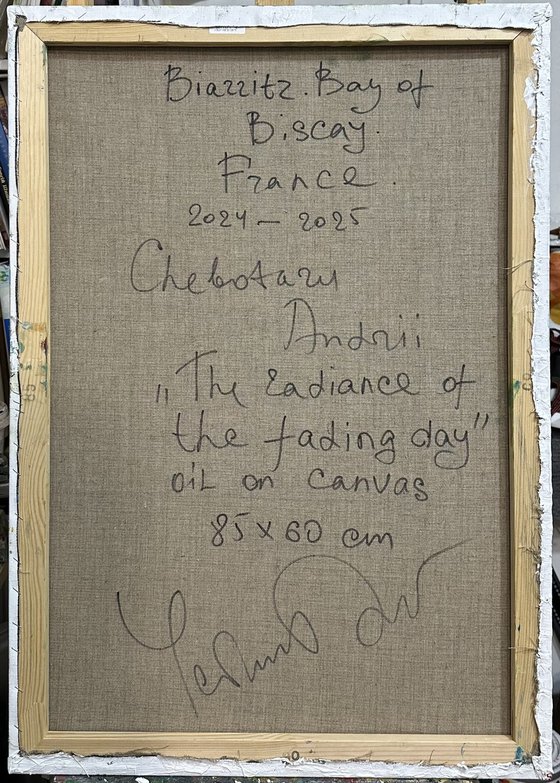 Biarritz. Bay of
Biscay.
France.
2024 – 2025
Chebotaru
Andrii
„The radiance of
the fading day"
oil on canvas
85 x 60 cm